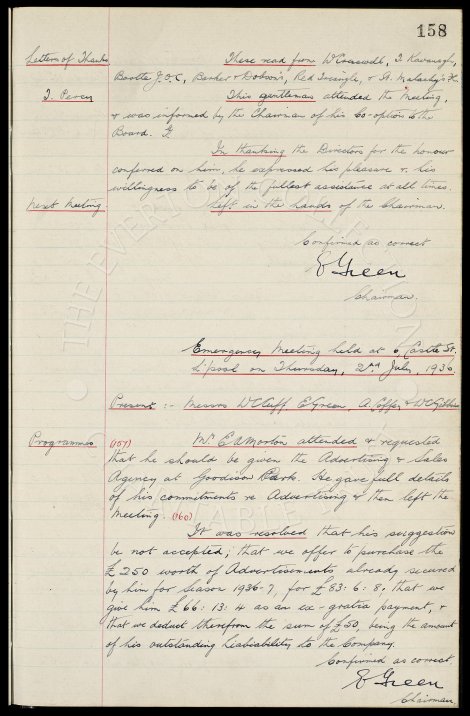 158
Letters of Thanks These read from W Cresswell, T. Kavanagh,
Bootle J.O.C, Barker & Dobson's, Red Triangle, & St. Malachy's
T. Percy This gentleman attended the Meeting,
& was informed by the Chairman of his Co-option to the
Board.
In thanking the Directors for the honour
conferred on him, he expressed his pleasure & his
willingness to be of the fullest assistance at all times.
Next Meeting Left in the hands of the Chairman.
Confirmed as correct
E Green
Chairman.
Emergency Meeting held at 6 Castle St.
L'pool on Thursday, 2nd July, 1936
Present :- Messrs W C Cuff, E. Green, A. Coffey & W C Gibbins
Programmes (157) Mr E A Morton attended & requested
that he should be given the Advertising & Sales
Agency at Goodison Park. He gave full details
of his commitments re Advertising & then left the
Meeting. (160)
It was resolved that his suggestion
be not accepted; that we offer to purchase the
£250 worth of Advertisements already secured
by him for Season 1936-7, for £83:6:8; that we
give him £66:13:4 as an ex-gratia payment, &
that we deduct therefrom the sum of £50, being the amount
of his outstanding liabeability to the Company.
Confirmed as correct.
E Green
Chairman
THE EVERTON